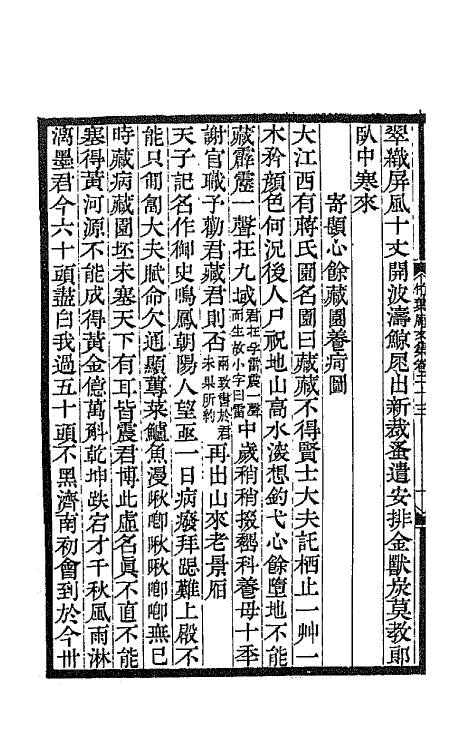 翠織屛風十丈開波濤鯨尾出新裁蚤遣安排金獸炭莫教郞
臥中寒來
寄題心餘藏園養疴圖
大江西有蔣氏園名園曰藏藏不得賢士大夫託栖止一艸一
木矜顏色何況後人尸祝地山高水淡想釣弋心餘墮地不能
藏霹靂一聲在九域君在孕雷震一聲而生故小字曰雷中歲稍稍掇甕科養母十季
謝官職子勸君藏君則否兩致書於君未果所約再出山來老景庙
天子記名作御史鳴鳳朝陽人望亟一日病癈拜跽難上殿不
能只匍匐大夫賦命欠通顯蓴菜鱸魚漫啾唧啾啾唧唧無已
時藏病藏園坯未塞天下有耳皆震君博此虛名眞不直不能
塞得黃河源不能成得黃金億萬斛乾坤跌宕才千秋風雨淋
漓墨君今六十頭盡白我過五十頭不黑濟南初會到於今卅
竹葉庵文集卷二十三